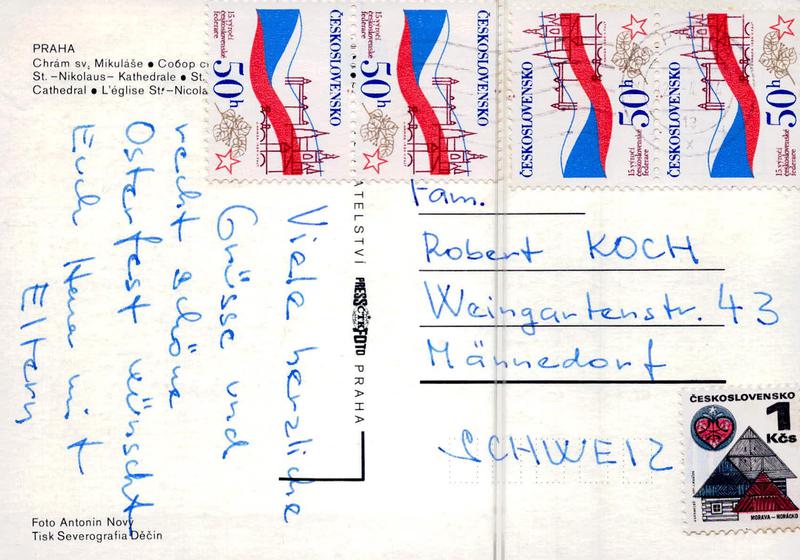 PRAHA
Chrám sv. Mikuláše • Собор
St. -Nikolaus- Kathedrale • St.
Cathedral • L'église St-Nicola
15. výročí
československé
federace
50h
ČESKOSLOVENSKO
15. výročí
československé
federace
50h
ČESKOSLOVENSKO
ČESKOSLOVENSKO
50h
15. výročí
československé
federace
ČESKOSLOVENSKO
50h
15. výročí
československé
federace
Viele herzliche
Grüsse und
recht schöne
Osterfest wünscht
Euch Hana mit
Eltern
ATELSTVÍ PRESSFOTO PRAHA
ČTK
Fam.
Robert KOCH
Weingartenstr. 43
Männedorf
SCHWEIZ
ČESKOSLOVENSKO
1
Kčs
MORAVA - HORÁCKO
Foto Antonín Nový
Tisk Severografia Děčín